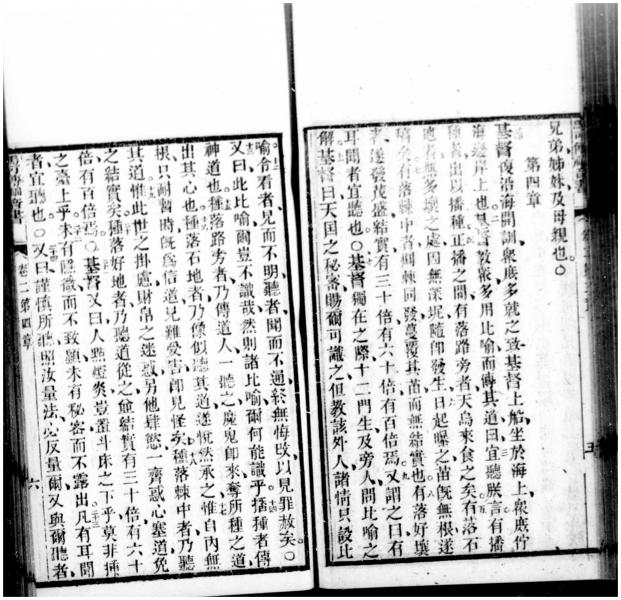 兄弟姊妹及母親也○
第四章
基督復沿海開訓衆庶多就之致基督上船坐於海上衆庶佇
海邊岸上也基督教衆多用比喻而傳其道曰宜聽朕言有播
種者出以播種正播之間有落路旁者天鳥來食之矣有落石
地者無多壤之處因無深坭隨卽發生日起曝之苗旣無根遂
稿矣有落棘中者棘同發蔓覆其苗而無結實也有落好壤
者遂發茂盛結實有三十倍有六十倍有百倍焉又謂之曰有
耳聞者宜聽也○基督獨在之際十二門生及旁人問比喻之
解基督曰天国之秘密賜爾可識之但敎該外人諸情只設比
喻令看者見而不明聽者聞而不通終無悔改以見罪赦矣○
又曰此比喻爾豈不識哉然則諸比喻爾何能識乎播種者傳
神道也種落路旁者乃傳道人一聽之魔鬼卽來奪所種之道
出其心也種落石地者乃像似聽其道遂恱然承之惟自內無
根只耐暫時旣爲信道見難受害卽見怪矣種落棘中者乃聽
其道惟此世之掛慮財帛之迷惑另他肆慾一齊惑心塞道免
之結實矣種落好地者乃聽道從之愈結實有三十倍有六十
倍有百倍焉○基督又曰人點燈炎豈置斗床之下乎莫非挿
之臺上乎未有隱微而不致顯未有秘密而不露出凡有耳聞
者宜聽也○又曰謹慎所聽照汝量法必反量爾又與爾聽者
卷二 第四章
六